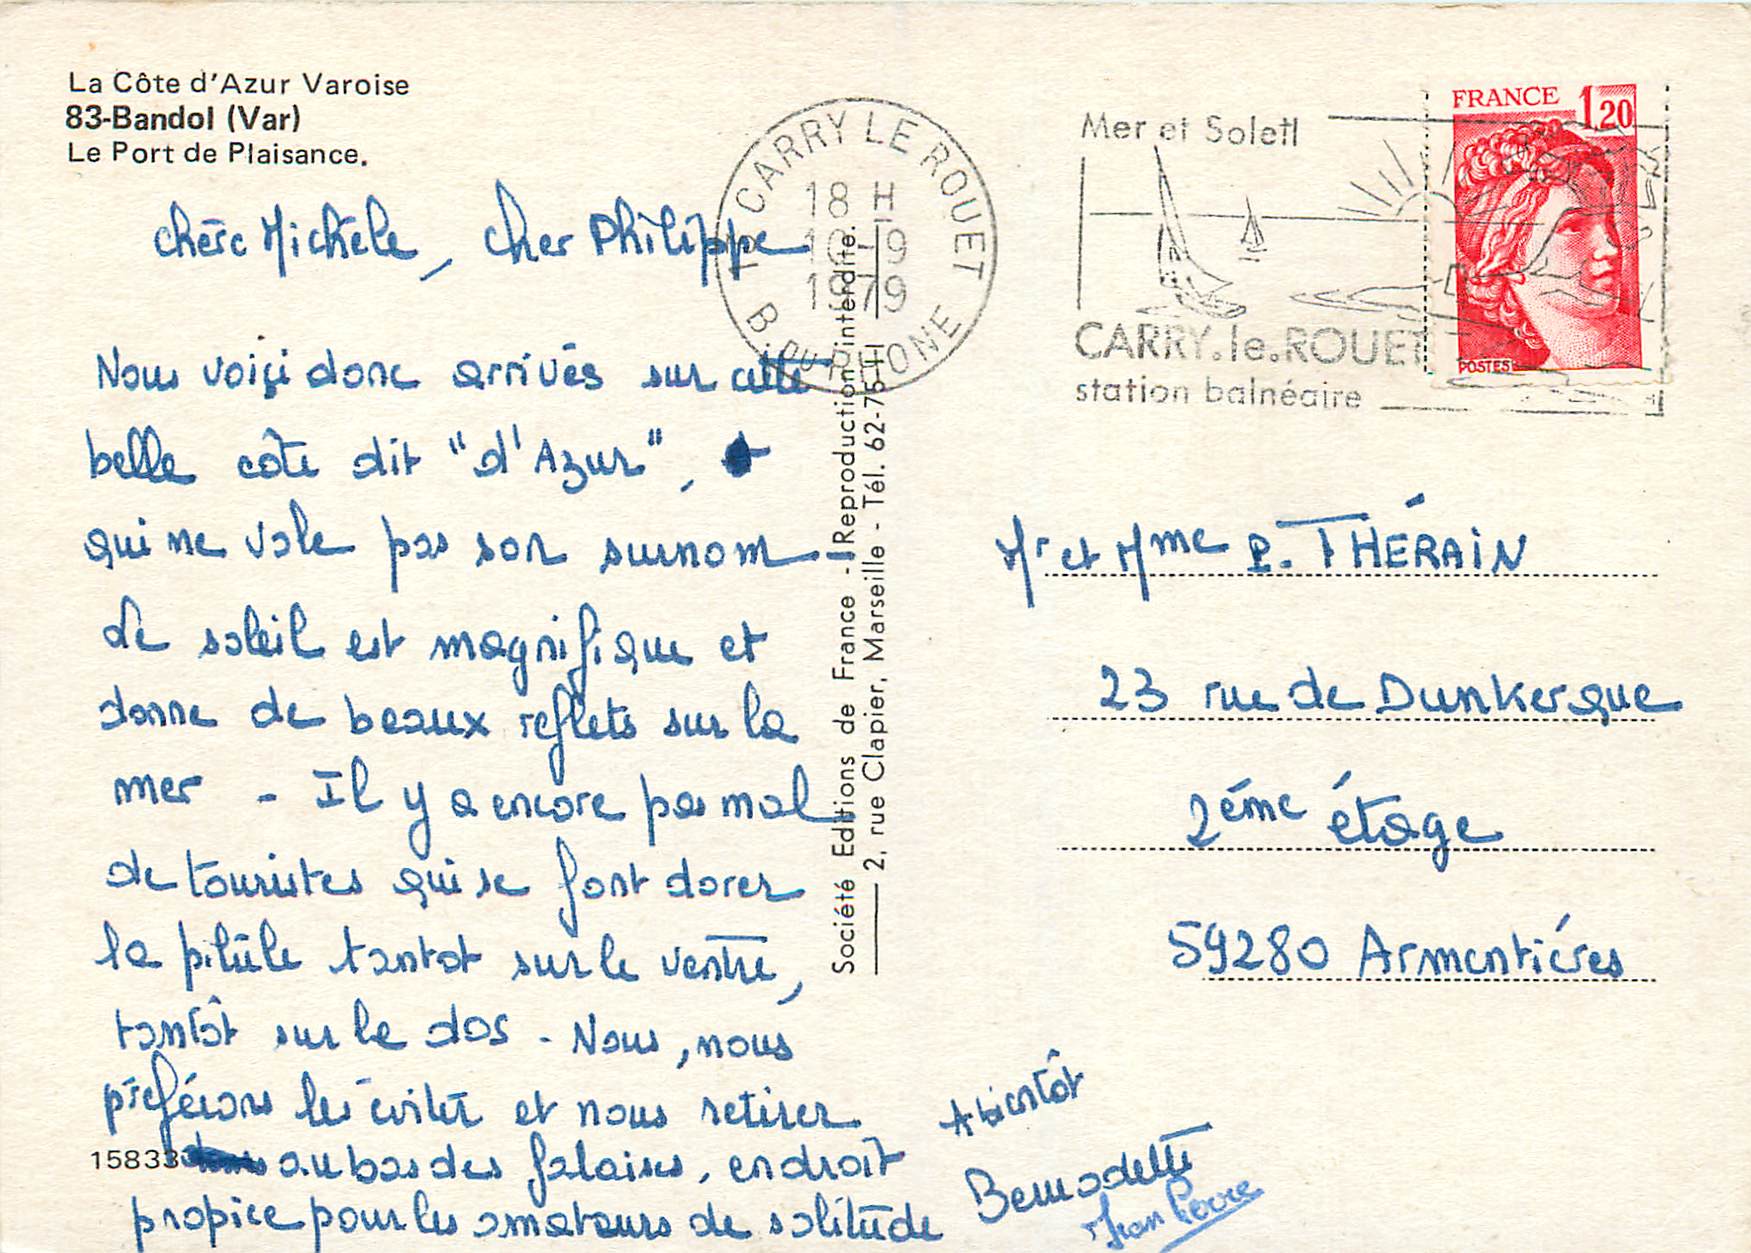 La Côte d'Azur Varoise
83-Bandol (Var)
Le Port de Plaisance.
CARRY LE ROUET
18 H
10-9
1979
B. DU RHONE
Mer et Soleil
CARRY.le.ROUET
station balnéaire
FRANCE 1,20
POSTES
chère Michèle, cher Philippe
Nous voiçi donc arrivés sur cette
belle côte dit "d'Azur",
qui ne vole pas son surnom
Le soleil est magnifique et
donne de beaux reflets sur la
mer - Il y a encore pas mal
de touristes qui se font dorer
la pilule tantot sur le ventre,
tantôt sur le dos - Nous, nous
préférons les éviter et nous retirer
au bas des falaises, endroit
propice pour les amateurs de solitude
15833
Société Editions de France - Reproduction interdite.
2, rue Clapier, Marseille - Tél. 62-75-11
Mr et Mme P. THÉRAIN
23 rue de Dunkerque
2éme étage
59280 Armentiéres
A bientôt
Bernadette
Jean Pierre